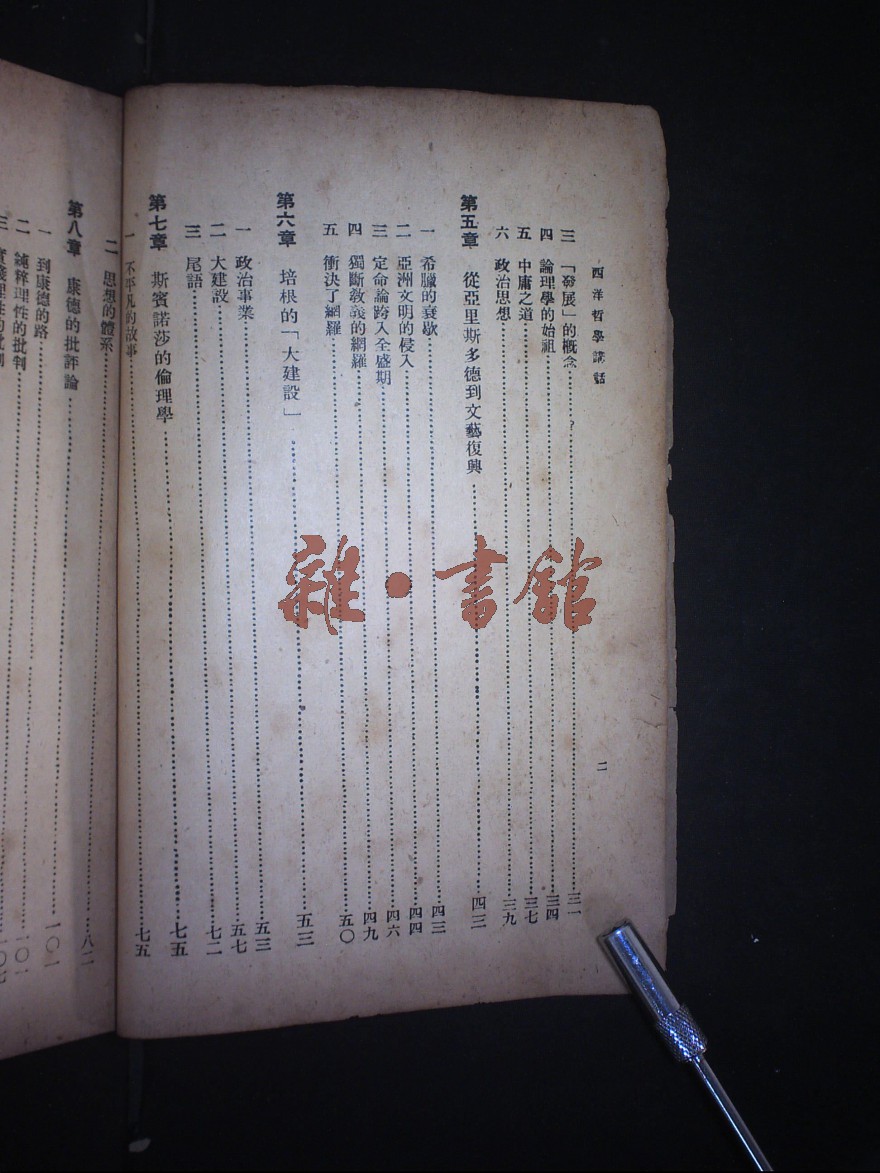 西洋哲學講話
二
三 「發展」的概念……三一
四 論理學的始祖……三四
五 中庸之道……三七
六 政治思想……三九
第五章 從亞里斯多德到文藝復興……四三
一 希臘的衰歇……四三
二 亞洲文明的侵入……四四
三 定命論跨入全盛期……四六
四 獨斷敎義的網羅……四九
五 衝決了網羅……五〇
第六章 培根的「大建設」……五三
一 政治事業……五三
二 大建設……五七
三 尾語……七二
第七章 斯賓諾莎的倫理學……七五
一 不平凡的故事……七五
二 思想的體系……八二
第八章 康德的批評論
一 到康德的路……一〇一
二 純粹理性的批判……一〇一
三 實踐理性的批判……一〇七
雜·書館